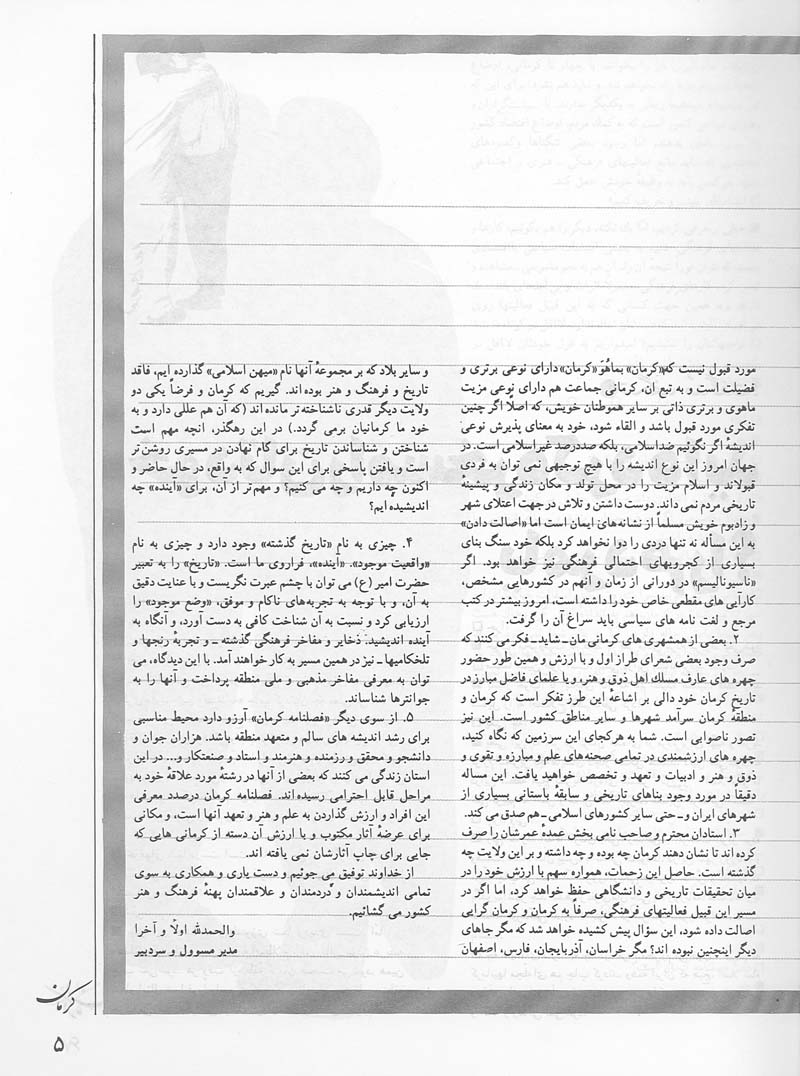 مورد قبول نیست که «کرمان» بماهُوَ «کرمان» دارای نوعی برتری و
فضیلت است و به تبع ان، کرمانی جماعت هم دارای نوعی مزیت
ماهوی و برتری ذاتی بر سایر هموطنان خویش، که اصلاً اگر چنین
تفکری مورد قبول باشد و القاء شود، خود به معنای پذیرش نوعی
اندیشهٔ اگر نگوئیم ضداسلامی، بلکه صددرصد غیراسلامی است. در
جهان امروز این نوع اندیشه را با هیچ توجیهی نمی توان به فردی
قبولاند و اسلام مزیت را در محل تولد و مکان زندگی و پیشینهٔ
تاریخی مردم نمی داند. دوست داشتن و تلاش در جهت اعتلای شهر
و زادبوم خویش مسلماً از نشانه‌های ایمان است اما «اصالت دادن»
به این مسأله نه تنها دردی را دوا نخواهد کرد بلکه خود سنگ بنای
بسیاری از کجرویهای احتمالی فرهنگی نیز خواهد بود. اگر
«ناسیونالیسم» در دورانی از زمان و آنهم در کشورهایی مشخص،
کارآیی های مقطعی خاص خود را داشته است، امروز بیشتر در کتب
مرجع و لغت نامه های سیاسی باید سراغ آن را گرفت.
۲. بعضی از همشهری های کرمانی مان ـ شاید ـ فکر می کنند که
صرف وجود بعضی شعرای طراز اول و با ارزش و همین طور حضور
چهره های عارف مسلك اهل ذوق و هنر، و یا علمای فاضل مبارز در
تاریخ کرمان خود دالی بر اشاعهٔ این طرز تفکر است که کرمان و
منطقهٔ کرمان سرآمد شهرها و سایر مناطق کشور است. این نیز
تصور ناصوابی است. شما به هرکجای این سرزمین که نگاه کنید،
چهره های ارزشمندی در تمامی صحنه‌های علم و مبارزه و تقوی و
ذوق و هنر و ادبیات و تعهد و تخصص خواهید یافت. این مساله
دقیقاً در مورد وجود بناهای تاریخی و سابقهٔ باستانی بسیاری از
شهرهای ایران و ـ حتی سایر کشورهای اسلامی ـ هم صدق می کند.
۳. استادان محترم و صاحب نامی بخش عمدهٔ عمرشان را صرف
کرده اند تا نشان دهند کرمان چه بوده و چه داشته و بر این ولایت چه
گذشته است. حاصل این زحمات، همواره سهم با ارزش خود را در
میان تحقیقات تاریخی و دانشگاهی حفظ خواهد کرد، اما اگر در
مسیر این قبیل فعالیتهای فرهنگی، صرفاً به کرمان و کرمان گرایی
اصالت داده شود، این سؤال پیش کشیده خواهد شد که مگر جاهای
دیگر اینچنین نبوده اند؟ مگر خراسان، آذربایجان، فارس، اصفهان
و سایر بلاد که بر مجموعهٔ آنها نام «میهن اسلامی» گذارده ایم، فاقد
تاریخ و فرهنگ و هنر بوده اند. گیریم که کرمان و فرضاً یکی دو
ولایت دیگر قدری ناشناخته‌تر مانده اند (که آن هم عللی دارد و به
خود ما کرمانیان برمی گردد.) در این رهگذر، انچه مهم است
شناختن و شناساندن تاریخ برای گام نهادن در مسیری روشن‌تر
است و یافتن پاسخی برای این سوال که به واقع، در حال حاضر و
اکنون چه داریم و چه می کنیم؟ و مهم‌تر از آن، برای «آینده» چه
اندیشیده ایم؟
۴. چیزی به نام «تاریخ گذشته» وجود دارد و چیزی به نام
«واقعیت موجود». «آینده»، فراروی ما است. «تاریخ» را به تعبیر
حضرت امیر (ع) می توان با چشم عبرت نگریست و با عنایت دقیق
به آن، و با توجه به تجربه‌های ناکام و موفق، «وضع موجود» را
ارزیابی کرد و نسبت به آن شناخت کافی به دست آورد، و آنگاه به
آینده اندیشید. ذخایر و مفاخر فرهنگی گذشته ـ و تجربهٔ رنجها و
تلخکامیها ـ نیز در همین مسیر به کار خواهند آمد. با این دیدگاه، می
توان به معرفی مفاخر مذهبی و ملی منطقه پرداخت و آنها را به
جوانترها شناساند.
۵. از سوی دیگر «فصلنامه کرمان» آرزو دارد محیط مناسبی
برای رشد اندیشه های سالم و متعهد منطقه باشد. هزاران جوان و
دانشجو و محقق و رزمنده و هنرمند و استاد و صنعتکار و... در این
استان زندگی می کنند که بعضی از آنها در رشتهٔ مورد علاقهٔ خود به
مراحل قابل احترامی رسیده اند. فصلنامه کرمان درصدد معرفی
این افراد و ارزش گذاردن به علم و هنر و تعهد آنها است، و مکانی
برای عرضهٔ آثار مکتوب و با ارزش آن دسته از کرمانی هایی که
جایی برای چاپ آثارشان نمی یافته اند.
از خداوند توفیق می جوئیم و دست یاری و همکاری به سوی
تمامی اندیشمندان و دردمندان و علاقمندان پهنهٔ فرهنگ و هنر
کشور می گشائیم.
والحمدلله اولاً و آخرا
مدیر مسوول و سردبیر
کرمان
۵